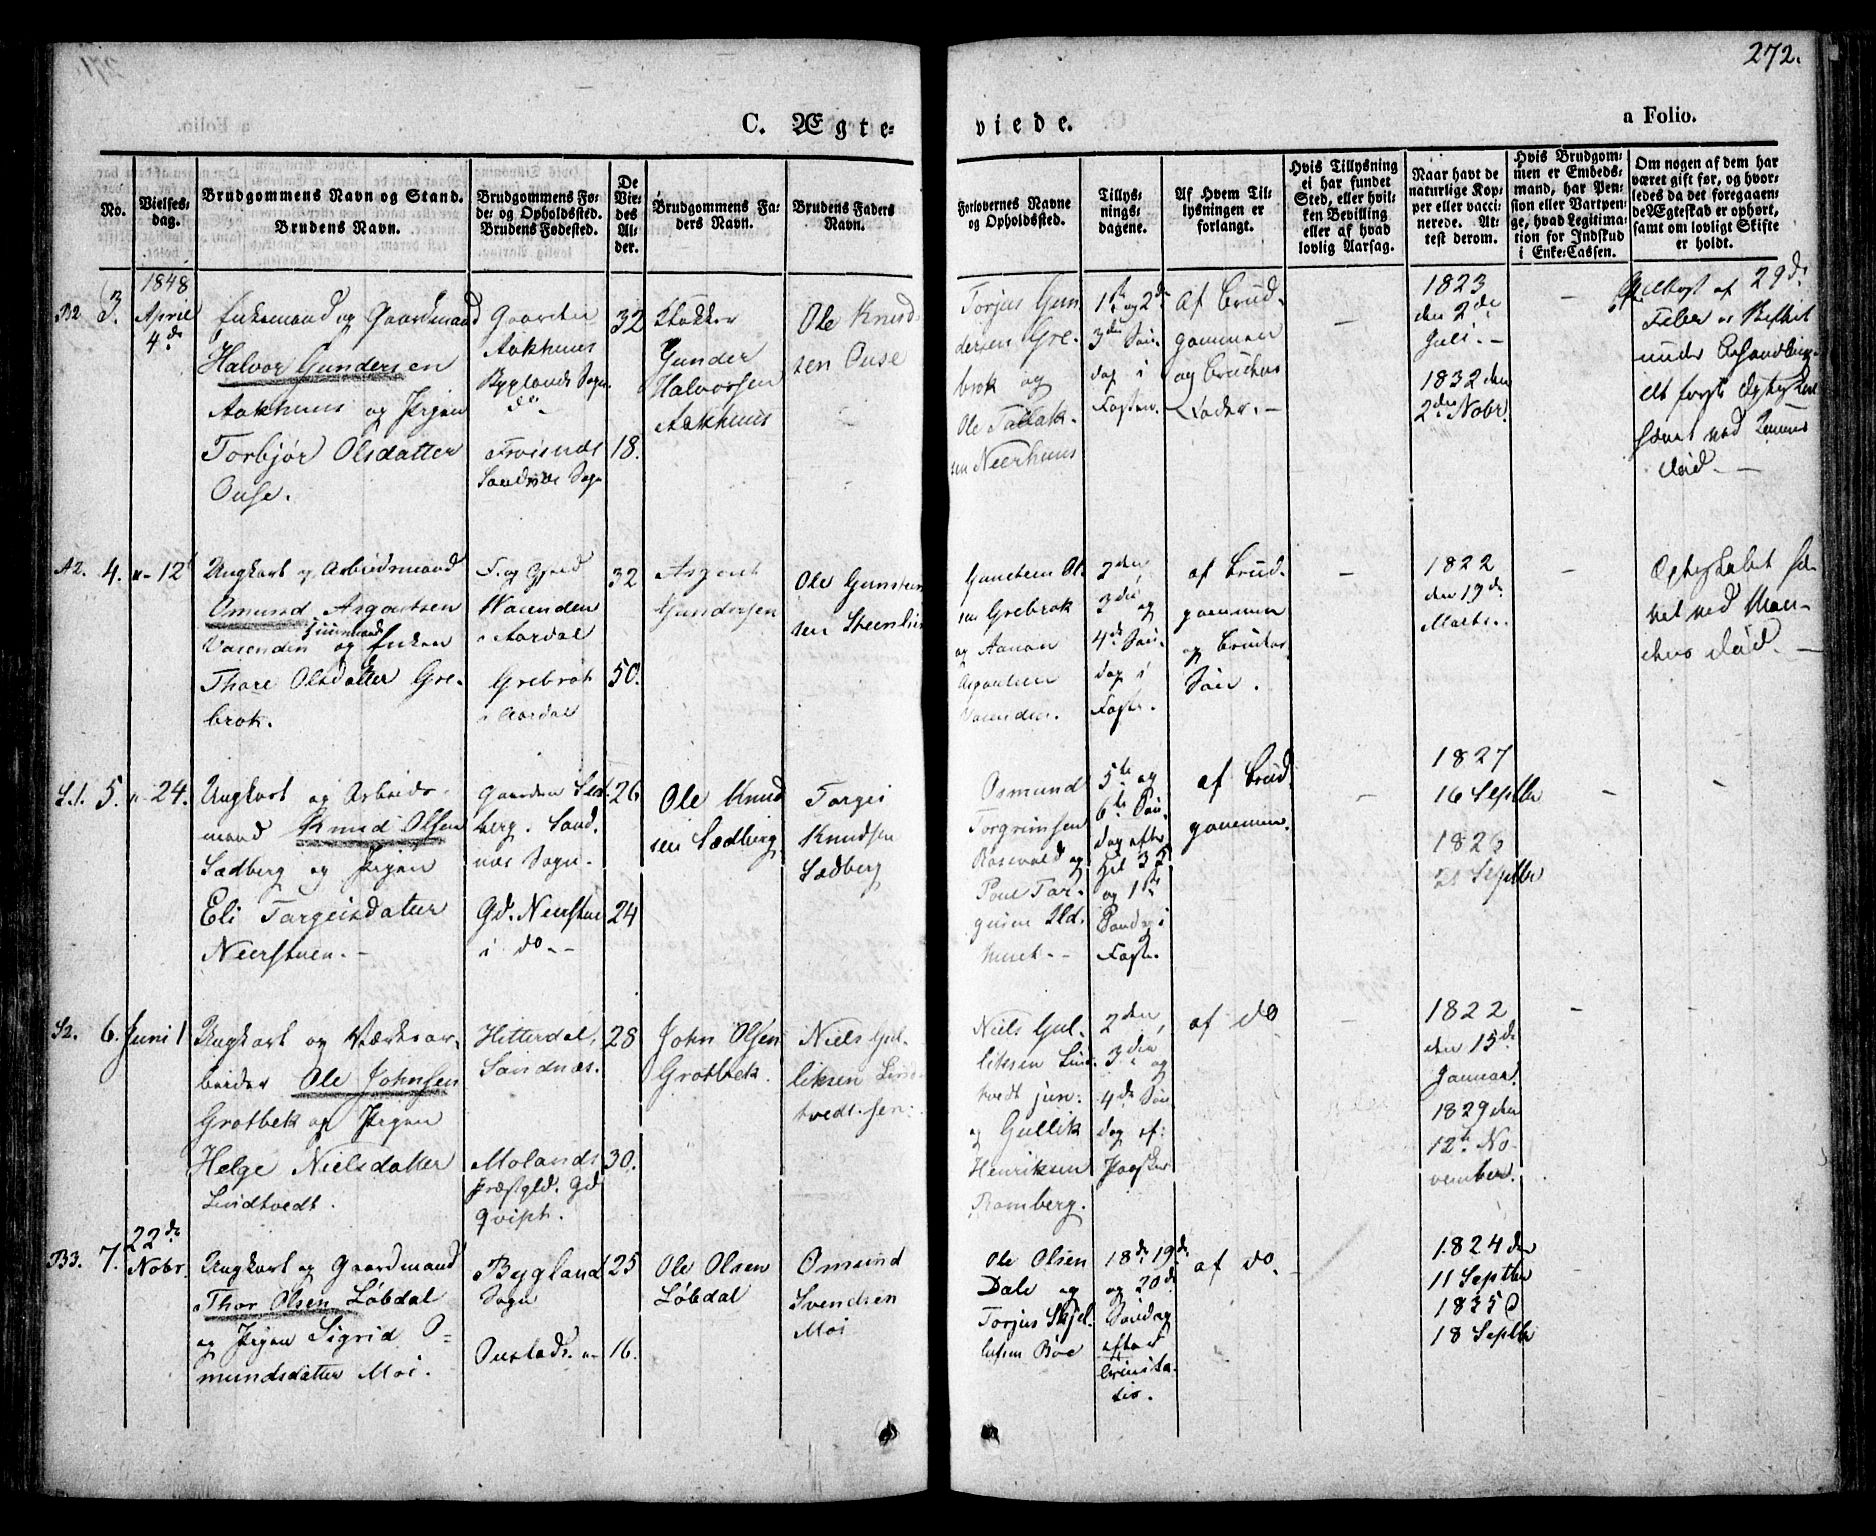 272.
C. Ægte=
viede.
a Folio.
No.
Vielses-
dag.
Brudgommens Navn og Stand.
Brudens Navn.
Brudgommens Fø-
de- og Opholdssted.
Brudens Fødested.
De
Vir-
des
Al-
der.
Brudgommens Fa-
ders Navn.
Brudens Faders
Navn.
Forlovernes Navne
og Opholdssted.
Tillys-
nings-
dagene.
Af Hvem Til-
lysningen er
forlangt.
Hvis Tillysning
ei har fundet
Sted, eller hvil-
ken Bevilling
eller af hvad
lovlig Aarsag.
Naar havt de
naturlige Kop-
per eller vacci-
nerede. At-
test derom.
Hvis Brudgom-
men er Embeds-
mand, har Pen-
sion eller Vartpen-
ge, hvad Legitima-
tion for Indskud
i Enke-Cassen.
Om nogen af dem har
været gift før, og hvor-
ledes da det foregaaen-
de Ægteskad er ophørt,
samt om lovligt Skifte
er holdt.
B2
3.
1848
April
4de
Enkemand og Gaardmand
Halvor Gundersen
Aakhuus og Pigen
Torbjør Olsdatter
Ouse.
Gaarden
Aakhuus
Byglands Sogn
do
Froisnæs
Sandnæs Sogn
32
18.
Gunder
Halvorsen
Aakhuus
Ole Knud-
sen Ouse
Torjus Gun-
dersen Gre-
brok og
Ole Tallak-
sen Neerhuus
1ste og 2de
3die Søn-
dag i
Fasten.
Af Brud-
gommen
og Brudens
Fader.
1823
den 2de
Juli.
1832 den
2den Nobr
29de
Febr
død.
A2.
4.
"- 12te
Ungkarl og Arbeidsmand
Omund Asgautsen
Vasenden og Enken
Thore Olsdatter Gre-
brok.
F. og Gaard
Vasenden
i Aardal
Grebrok
i Aardal
32
50.
Asgaut
Gundersen
Ole Gunstein-
sen Steenslie
Gunstein Ol-
sen Grebrok
og Aanon
Asgautsen
Vasenden.
2den
3die og
4de Søn-
dag i
Faste.
af Brud-
gommen
og Brudens
Søn.
1822
den 19de
Marts.
Egteskabet hæ-
vet ved Man-
dens død.
S.1.
5.
"- 24.
Ungkarl og Arbeids-
mand Knud Olsen
Sædberg og Pigen
Eli Targeisdatter
Neerstuen.
Gaarden Sæd-
berg. Sand-
næs Sogn.
Gd. Neerstue
i do.
26
24
Ole Knud
sen Sædberg
Targei
Knudsen
Sædberg
Osmund
Torgrimsen
Rosevold og
5te og
6te Søn-
dag efter
Hel. 3 K
og 1ste
Søndag i
Faste.
af Brud-
gommen.
1827
16 Septbr
1826
21 Septbr
S2.
6.
Juni 1
Ungkarl og Værksar-
beider Ole Johnsen
Grotbek og Pigen
Helge Nielsdatter
Lindtvedt.
Hitterdal,
Sandnæs.
Molands
Præstgld. Gd
28
30.
John Olsen
Grotbek.
Niels Gul-
liksen Lind-
tvedt sen:
Niels Gul-
liksen Lin-
tvedt jun:
og Gullik
Henriksen
Ramberg.
2den,
3die og
4de Søn
dag ef:
Paaske
af do
1822
den 15de
Januar
1829 den
12te No-
vember.
B3.
7.
22de
Nobr.
Ungkarl og Gaardmand
Thor Olsen Løbdal
og Pigen Sigrid O-
mundsdatter Moi.
Bygland
Sogn
Oustads. "-
25
16.
Ole Olsen
Løbdal
Omund
Svendsen
Moi
Ole Olsen
Dale og
Torjus Skjel-
lufsen Bøe
18de 19de
og 20de
Søndag
efter
trinita-
tis.
af do.
1824 den
11 Septbr
1835 d
18 Septbr